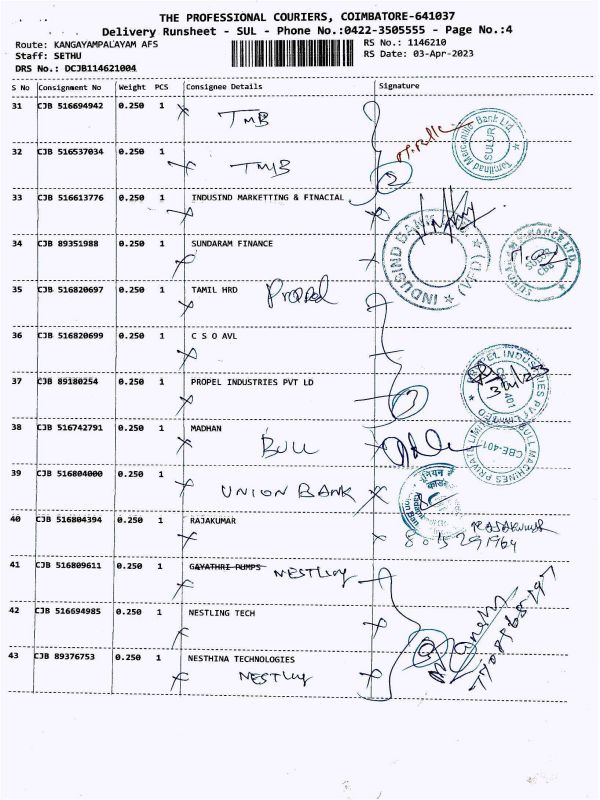 THE PROFESSIONAL COURIERS, COIMBATORE-641037
Delivery Runsheet - SUL - Phone No.:0422-3505555 - Page No.:4
Route: KANGAYAMPALAYAM AFS
RS No.: 1146210
Staff: SETHU
RS Date: 03-Apr-2023
DRS No.: DCJB114621004
S No Consignment No Weight PCS Consignee Details Signature
31 CJB 516694942 0.250 1
TMB
Tamilnad Mercantile Bank Ltd.
SULUR
32 CJB 516537034 0.250 1
TMB
2
33 CJB 516613776 0.250 1 INDUSIND MARKETTING & FINACIAL
INDUSIND BANK
34 CJB 89351988 0.250 1 SUNDARAM FINANCE
SUNDARAM FINANCE LTD.,
SULUR
CBE
35 CJB 516820697 0.250 1 TAMIL HRD Propel
36 CJB 516820699 0.250 1 C S O AVL
37 CJB 89180254 0.250 1 PROPEL INDUSTRIES PVT LD
PROPEL INDUSTRIES PVT LIMITED
3
38 CJB 516742791 0.250 1 MADHAN
BULL
BULL MACHINES PRIVATE LIMITED
CBE-401
39 CJB 516804000 0.250 1
UNION BANK
40 CJB 516804394 0.250 1 RAJAKUMAR
RAJAKUMAR
8015291964
41 CJB 516809611 0.250 1 GAYATHRI PUMPS NESTLING
42 CJB 516694985 0.250 1 NESTLING TECH
43 CJB 89376753 0.250 1 NESTHINA TECHNOLOGIES
NESTLING